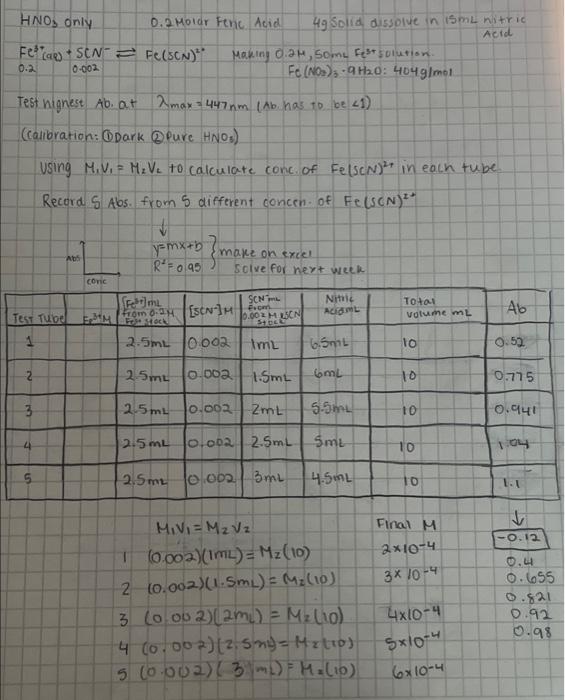 HNO3 only 0.2 Molar Feric Acid 4g Solid dissolve in 15mL nitric Acid
Fe3+(aq) + SCN- ⇌ Fe(SCN)2+ Making 0.2M, 50mL Fe3+ solution.
0.2 0.002 Fe(NO3)3 · 9H2O: 404g/mol
Test highest Ab. at λmax = 447nm (Ab. has to be <1)
(calibration: ① Dark ② Pure HNO3)
Using M1V1 = M2V2 to calculate conc. of Fe(SCN)2+ in each tube.
Record 5 Abs. from 5 different concen. of Fe(SCN)2+
↓
Abs y=mx+b } make on excel
R2 = 0.95 solve for next week
conc
Test Tube Fe3+M [Fe3+]mL from 0.2M Fe3+ stock [SCN-]M SCN-mL from 0.002M KSCN stock Nitric Acid mL Total volume mL Ab
1 2.5mL 0.002 1mL 6.5mL 10 0.52
2 2.5mL 0.002 1.5mL 6mL 10 0.775
3 2.5mL 0.002 2mL 5.5mL 10 0.941
4 2.5mL 0.002 2.5mL 5mL 10 1.04
5 2.5mL 0.002 3mL 4.5mL 10 1.1
M1V1 = M2V2 Final M ↓
-0.12
1 (0.002)(1mL) = M2(10) 2x10-4 0.4
2 (0.002)(1.5mL) = M2(10) 3x10-4 0.655
3 (0.002)(2mL) = M2(10) 4x10-4 0.821
4 (0.002)(2.5ml) = M2(10) 5x10-4 0.92
5 (0.002)(3mL) = M2(10) 6x10-4 0.98